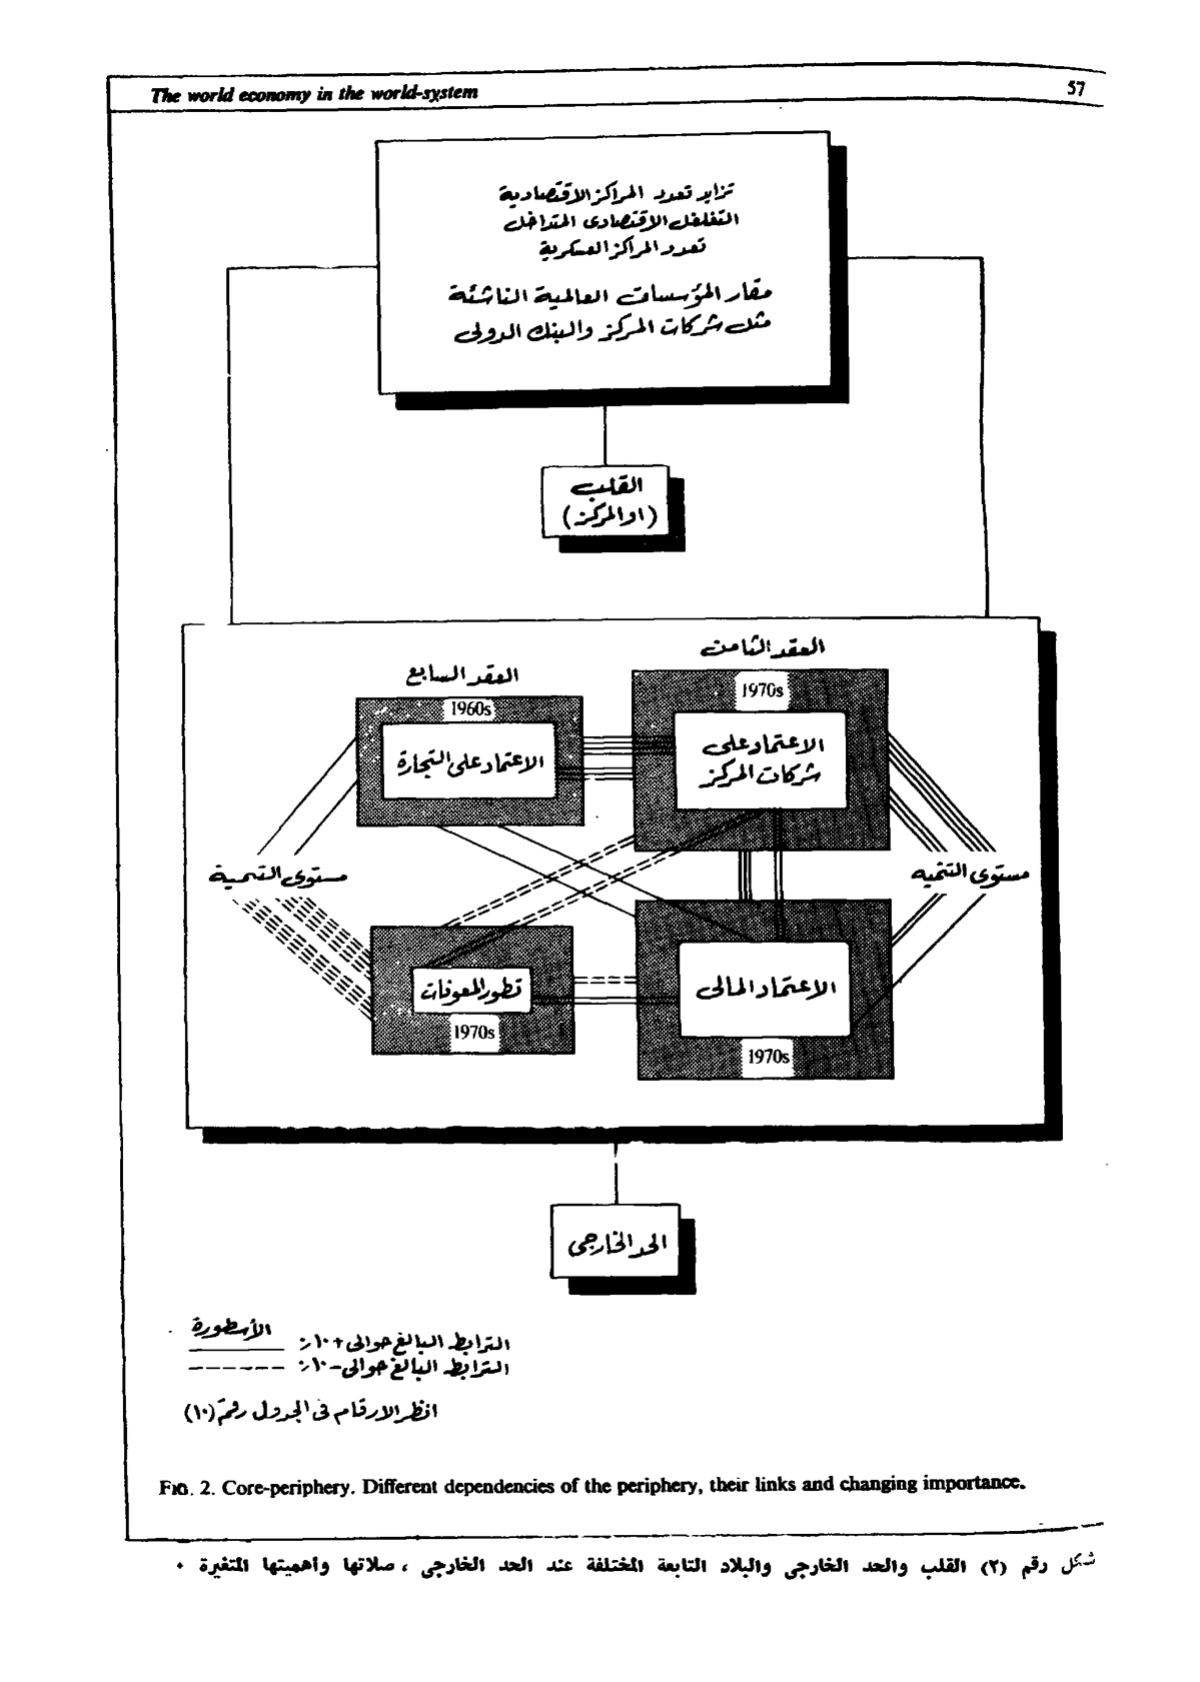 The world economy in the world-system
57
تزايد تعدد المراكز الاقتصادية
التغلغل الاقتصادى المتداخل
تعدد المراكز العسكرية
مقار المؤسسات العالمية الناشئة
مثل شركات المركز والبنك الدولى
القلب
(او المركز)
العقد السابع
العقد الثامن
1960s
1970s
الاعتماد على التجارة
الاعتماد على
شركات المركز
مستوى التنمية
مستوى التنميه
تطور المعونات
1970s
الاعتماد المالى
1970s
الحد الخارجى
الأسطورة
الترابط البالغ حوالى + ١٠٪
الترابط البالغ حوالى - ١٠٪
انظر الارقام فى الجدول رقم (١٠)
FIG. 2. Core-periphery. Different dependencies of the periphery, their links and changing importance.
شكل رقم (٢) القلب والحد الخارجى والبلاد التابعة المختلفة عند الحد الخارجى ، صلاتها واهميتها المتغيرة ٠